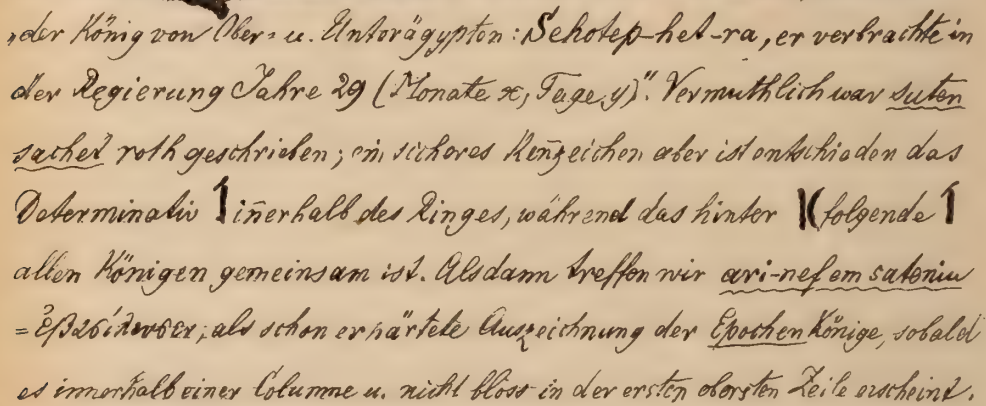 „der König von Ober- u. Unterägypten: Sehotep-het-ra, er verbrachte in
der Regierung Jahre 29 (Monate x, Tage y)". Vermuthlich war suten
sachet roth geschrieben; ein sicheres Kenñzeichen aber ist entschieden das
Determinativ iñerhalb des Ringes, während das hinter folgende
allen Königen gemeinsam ist. Alsdann treffen wir ari-nef em suteniu
= ἐβασίλευσεν, als schon erhärtete Auszeichnung der Epochenkönige, sobald
es innerhalb einer Columne u. nicht bloss in der ersten obersten Zeile erscheint.